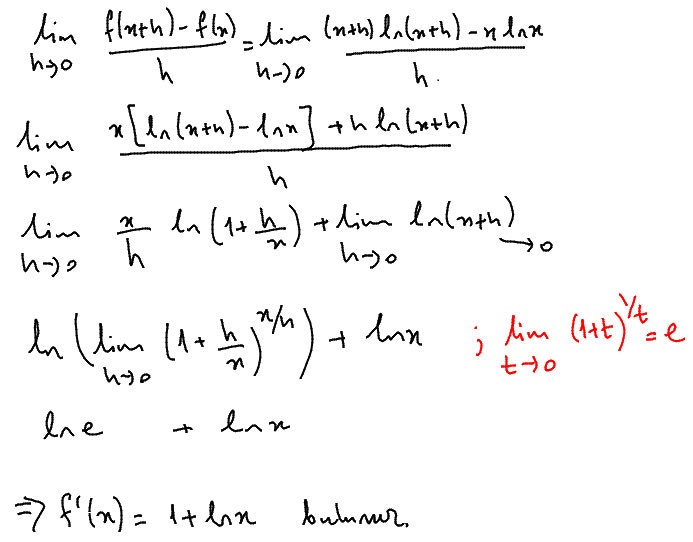 lim h→0 (f(x+h) - f(x)) / h = lim h→0 ((x+h) ln(x+h) - x lnx) / h.
lim h→0 (x[ln(x+h) - lnx] + h ln(x+h)) / h
lim h→0 x/h ln(1 + h/x) + lim h→0 ln(x+h) →0
ln(lim h→0 (1 + h/x)^(x/h)) + lnx ; lim t→0 (1+t)^(1/t) = e
lne + lnx
⇒ f'(x) = 1 + lnx bulunur.